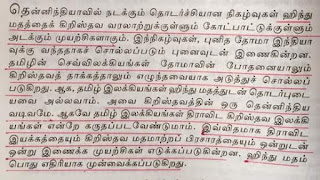 தென்னிந்தியாவில் நடக்கும் தொடர்ச்சியான நிகழ்வுகள் ஹிந்து
மதத்தைக் கிறிஸ்தவ வரலாற்றுக்குள்ளும் கோட்பாட்டுக்குள்ளும்
அடக்கும் முயற்சிகளாகும். இந்நிகழ்வுகள், புனித தோமா இந்தியா
வுக்கு வந்ததாகச் சொல்லப்படும் புனைவுடன் இணைகின்றன.
தமிழின் செவ்விலக்கியங்கள் தோமாவின் போதனையாலும்
கிறிஸ்தவத் தாக்கத்தாலும் எழுந்தவையாக அடுத்துச் சொல்லப்
படுகிறது. ஆக, தமிழ் இலக்கியங்கள் ஹிந்து மதத்துடன் தொடர்புடை
யவை அல்லவாம். அவை கிறிஸ்தவத்தின் ஒரு தென்னிந்திய
வடிவமே. ஆகவே தமிழ் இலக்கியங்கள் திராவிட கிறிஸ்தவ இலக்கி
யங்கள் என்றே கருதப்படவேண்டுமாம். இவ்விதமாக திராவிட
இயக்கத்தையும் கிறிஸ்தவ மதமாற்றப் பிரசாரத்தையும் ஒன்றுடன்
ஒன்று இணைக்க முயற்சிகள் எடுக்கப்படுகின்றன. ஹிந்து மதம்
பொது எதிரியாக முன்வைக்கப்படுகிறது.